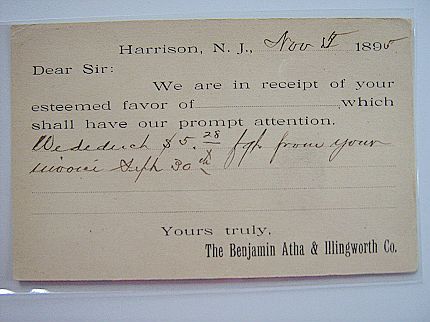 Harrison, N. J., Nov 1895
Dear Sir:
We are in receipt of your
esteemed favor of , which
shall have our prompt attention.
We deduct $5.28 from your
invoice Sept 30th
Yours truly,
The Benjamin Atha & Illingworth Co.